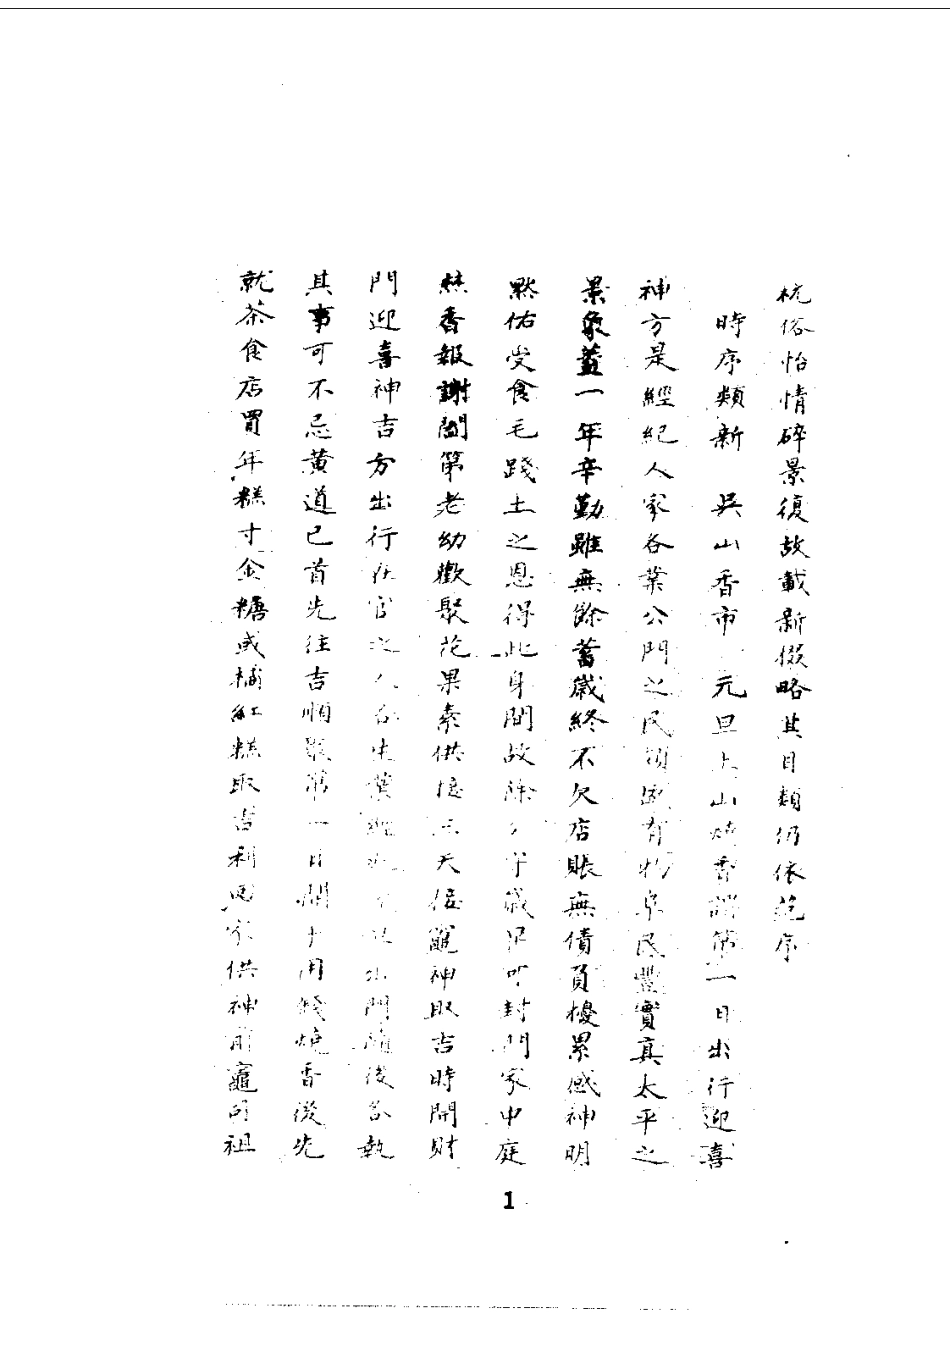 杭俗怡情碎景復故載新假略其目類仍依範序
時序類新 吳山香市 元旦上山燒香謂第一日出行迎喜
神方是經紀人家各業公門之民間有物阜民豐實真太平之
景象蓋一年辛勤雖無餘蓄歲終不欠店賬無債負擾累感神明
默佑受食毛踐土之恩得此身閒故除夕守歲早封門家中庭
焚香報謝闔第老幼歡聚花果素供接天接竈神取吉時開財
門迎喜神吉方出行在官之人各生業出門隨後各執
其事可不忌黃道已首先往吉順第一日開用錢燒香後先
就茶食店買年糕寸金糖或補紅糕取吉利回家供神前竈司祖
1